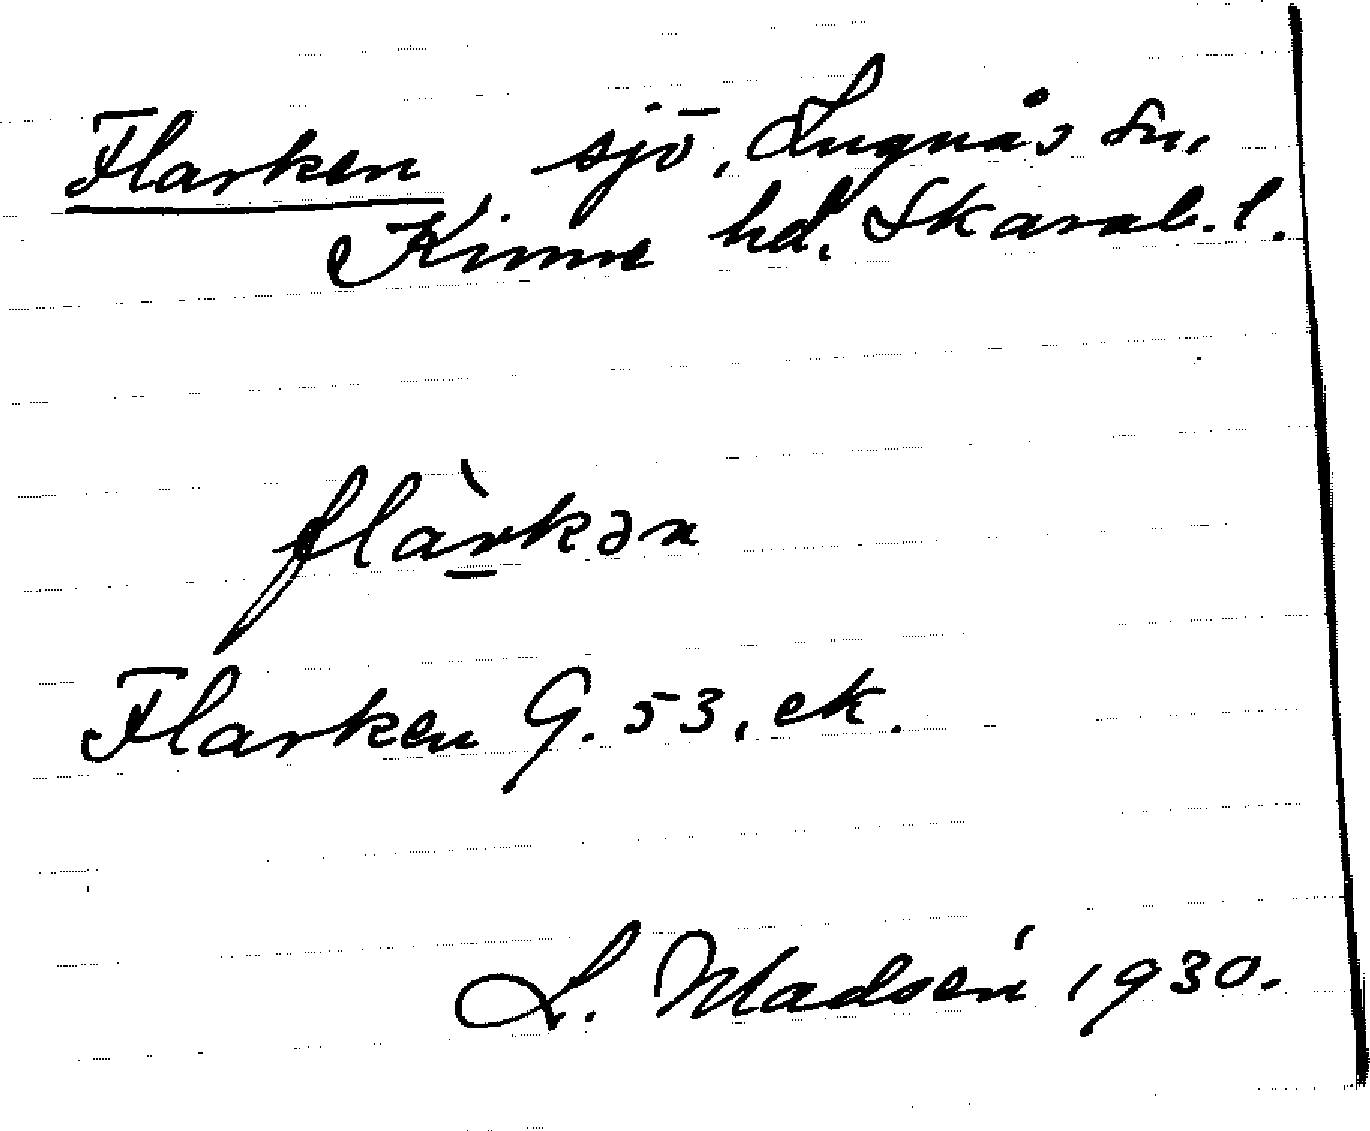 Flarken sjö, Lugnås sn,
Kinne hd, Skarab. l.
flàrkən
Flarken G. 53, ek.
L. Madsén 1930.